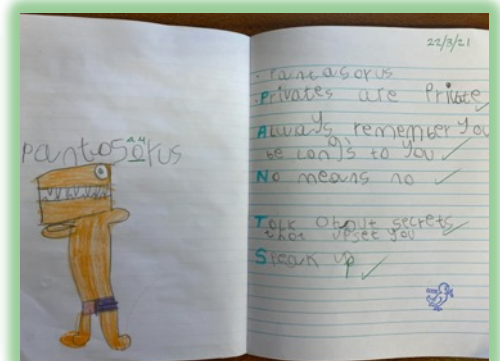 pantosorus
au
22/3/21
. Pantasorus
Privates are Private
Always remember you
be longs to you
No means no
Talk about secrets
that upset you
Speak up